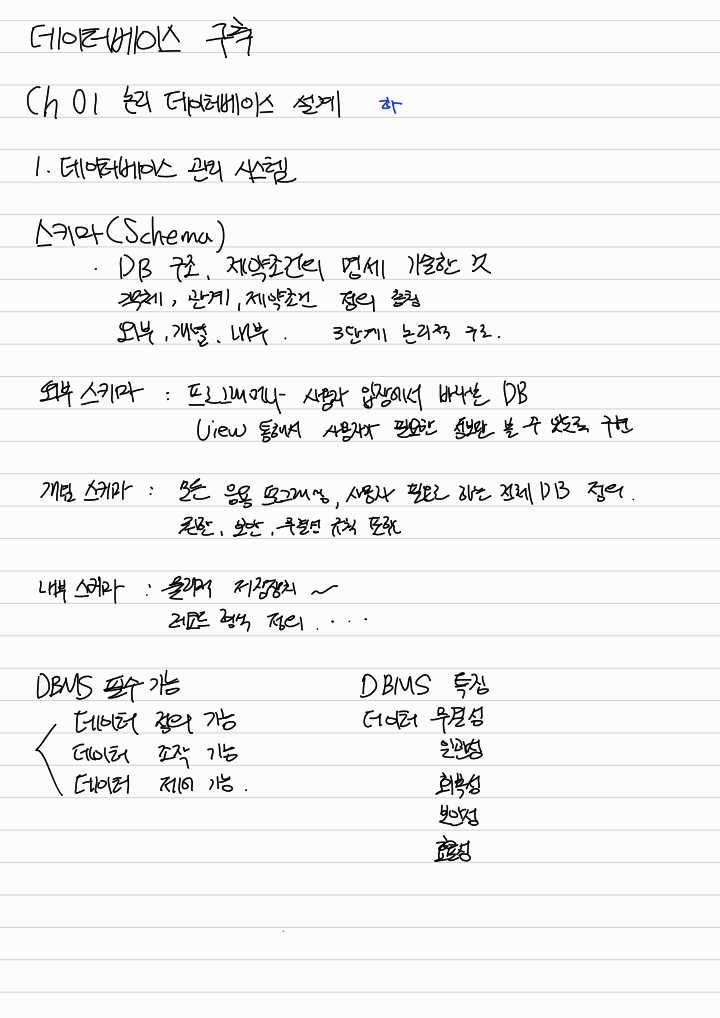 데이터베이스 구축
Ch 01 논리 데이터베이스 설계 하
1. 데이터베이스 관리 시스템
스키마(Schema)
· DB 구조, 제약조건의 명세 기술한 것
객체, 관계, 제약조건 정의 총칭
외부, 개념, 내부. 3단계 논리적 구조.
외부 스키마 : 프로그래머나 사용자 입장에서 바라본 DB
View 통해서 사용자가 필요한 정보만 볼 수 있도록 구현
개념 스키마 : 모든 응용 프로그램, 사용자 필요로 하는 전체 DB 정의.
권한, 보안, 무결성 규칙 포함
내부 스키마 : 물리적 저장장치 ~
레코드 형식 정의 . . . .
DBMS 필수 기능
데이터 정의 기능
데이터 조작 기능
데이터 제어 기능.
DBMS 특징
데이터 무결성
일관성
회복성
보안성
효율성